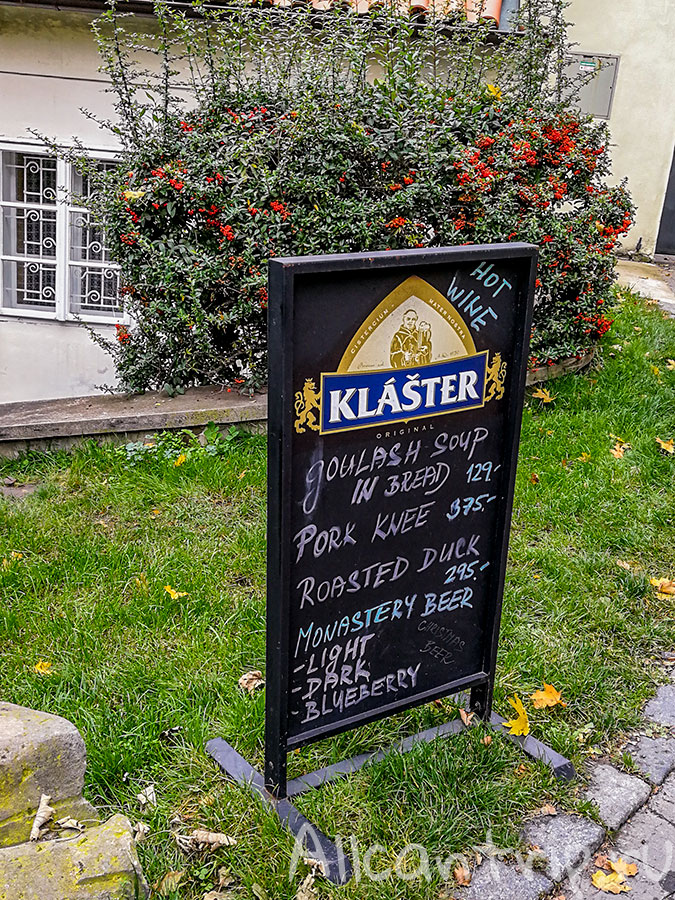 HOT
WINE
CISTERCIUM MATER NOSTRA
KLÁŠTER
ORIGINAL
GOULASH SOUP
IN BREAD 129.-
PORK KNEE 375.-
ROASTED DUCK
295.-
MONASTERY BEER
- LIGHT
- DARK
BLUEBERRY
CHRISTMAS
BEER
Allcantrip.ru